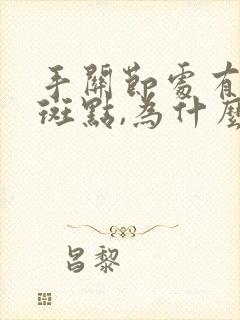 手關節處有
斑點,為什麼
昌黎